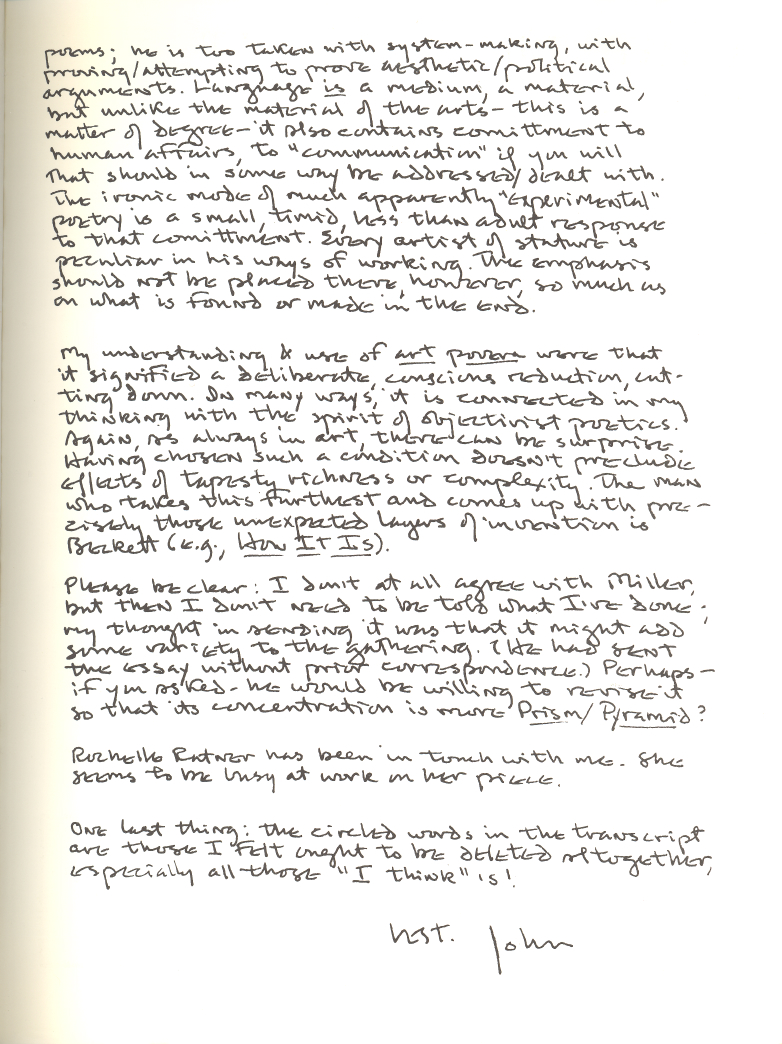 poems; he is too taken with system-making, with
proving/attempting to prove aesthetic/political
arguments. Language is a medium, a material,
but unlike the material of the arts - this is a
matter of degree - it also contains comittment to
human affairs, to "communication" if you will
that should in some way be addressed/dealt with.
The ironic mode of much apparently "experimental"
poetry is a small, timid, less than adult response
to that comittment. Every artist of stature is
peculiar in his ways of working. The emphasis
should not be placed there, however, so much as
on what is found or made in the end.
My understanding & use of art povera were that
it signified a deliberate, conscious reduction, cut-
ting down. In many ways, it is connected in my
thinking with the spirit of objectivist poetics.
Again, as always in art, there can be surprise.
Having chosen such a condition doesn't preclude
effects of tapesty richness or complexity. The man
who takes this furthest and comes up with pre-
cisely those unexpected layers of invention is
Beckett (e.g., How It Is).
Please be clear: I don't at all agree with Miller,
but then I don't need to be told what I've done;
my thought in sending it was that it might add
some variety to the gathering. (He had sent
the essay without prior correspondence.) Perhaps -
if you asked - he would be willing to revise it
so that its concentration is more Prism/Pyramid?
Rochelle Ratner has been in touch with me. She
seems to be busy at work on her piece.
One last thing: the circled words in the transcript
are those I felt ought to be deleted altogether,
especially all those "I think" is!
Best. John